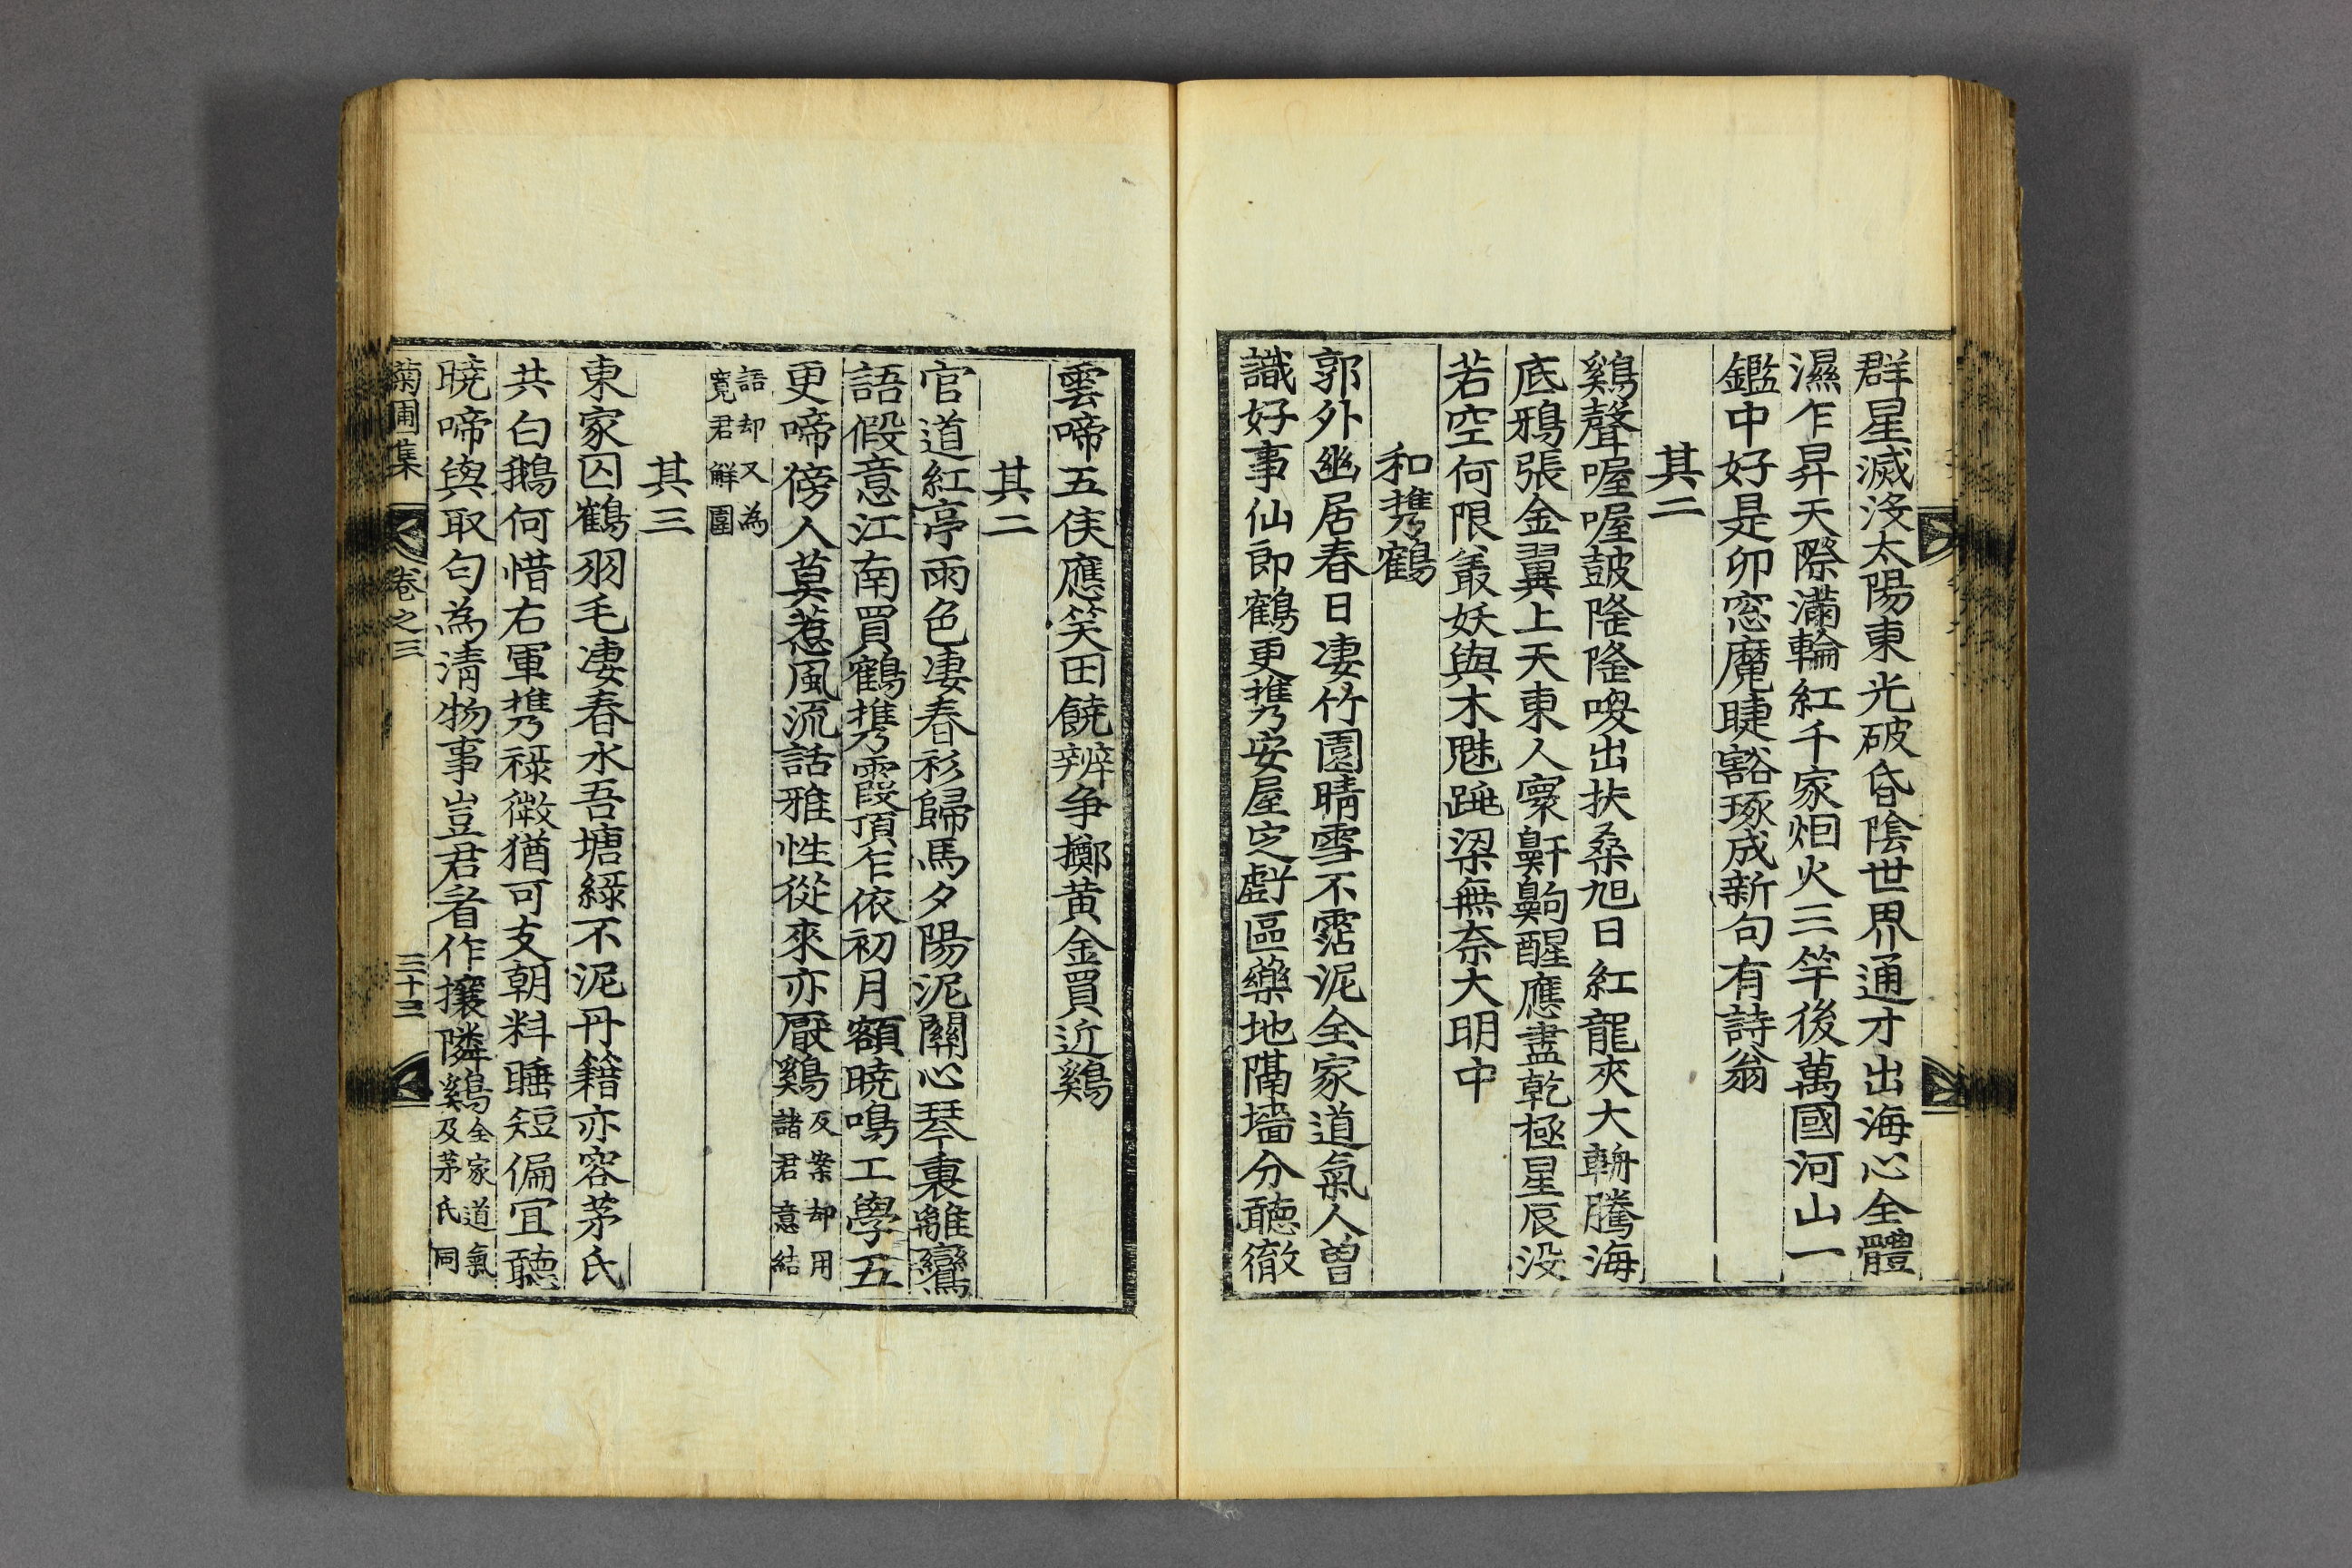 群星滅没太陽東光破昏陰世界通才出海心全體
濕乍昇天際滿輪紅千家烟火三竿後萬國河山一
鑑中好是卯窓魔睫豁琢成新句有詩翁
其二
鷄聲喔喔皷隆隆喚出扶桑旭日紅龍夾大輈騰海
底鴉張金翼上天東人寰鼾齁醒應盡乾極星辰没
若空何限叢妖與木魅跳梁無奈大明中
和携鶴
郭外幽居春日凄竹園晴雪不霑泥全家道氣人曽
識好事仙郎鶴更携安屋定虧區藥地隔墻分聽徹
雲啼五侯應笑田饒辨争擲黄金買近鷄
其二
官道紅亭雨色凄春衫歸馬夕陽泥關心琴裏離鸞
語假意江南買鶴携霞頂乍依初月額曉鳴工學五
更啼傍人莫惹風流話雅性從來亦厭鷄反案却用諸君意結
語却又為寬君解圍
其三
東家囚鶴羽毛凄春水吾塘綠不泥丹籍亦容茅氏
共白鵝何惜右軍携祿微猶可支朝料睡短偏宜聽
曉啼與取勻為清物事豈君看作攘隣鷄全家道氣及茅氏同
菊圃集 卷之三 三十三